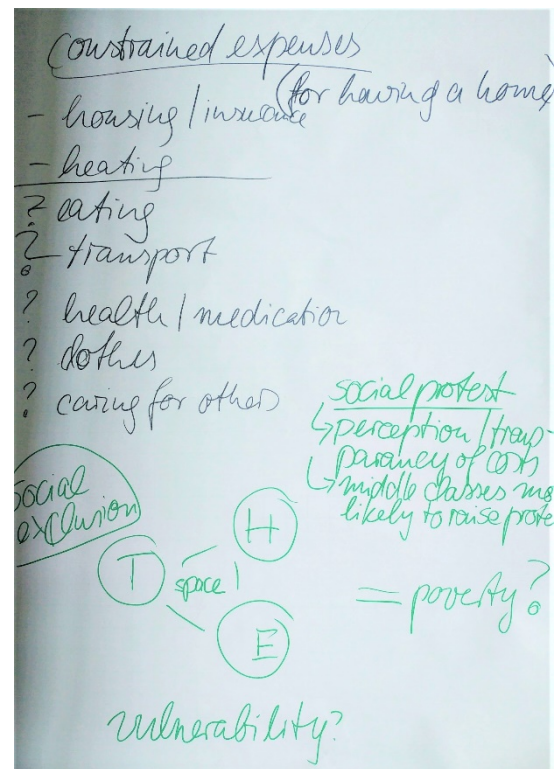 Constrained expenses
(for having a home)
- housing / insurance
- heating
? eating
? transport
? health / medication
? clothes
? caring for others
social protest
↳ perception / trans-
parancy of costs
↳ middle classes mo
likely to raise prote
social
exclusion
H
T
space
E
= poverty?
vulnerability?